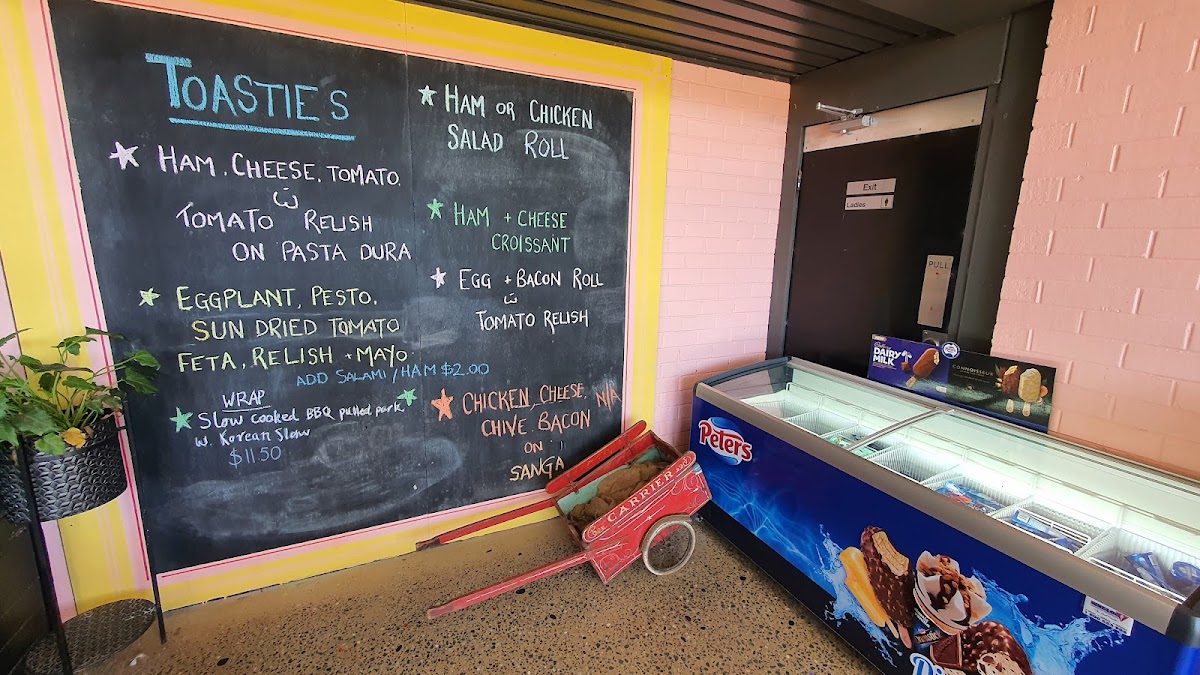 TOASTIES
HAM, CHEESE, TOMATO.
TOMATO RELISH
ON PASTA DURA
EGGPLANT, PESTO,
SUN DRIED TOMATO
FETA, RELISH + MAYO
ADD SALAMI / HAM $2.00
WRAP
Slow cooked BBQ pulled pork
w. Korean Slaw
$11.50
HAM OR CHICKEN
SALAD ROLL
HAM + CHEESE
CROISSANT
EGG + BACON ROLL
TOMATO RELISH
CHICKEN, CHEESE, N/A
CHIVE BACON
ON
SANGA
CARRIER
Exit
Ladies
PULL
Cadbury
DAIRY
MILK
CONNOISSEUR
Peters